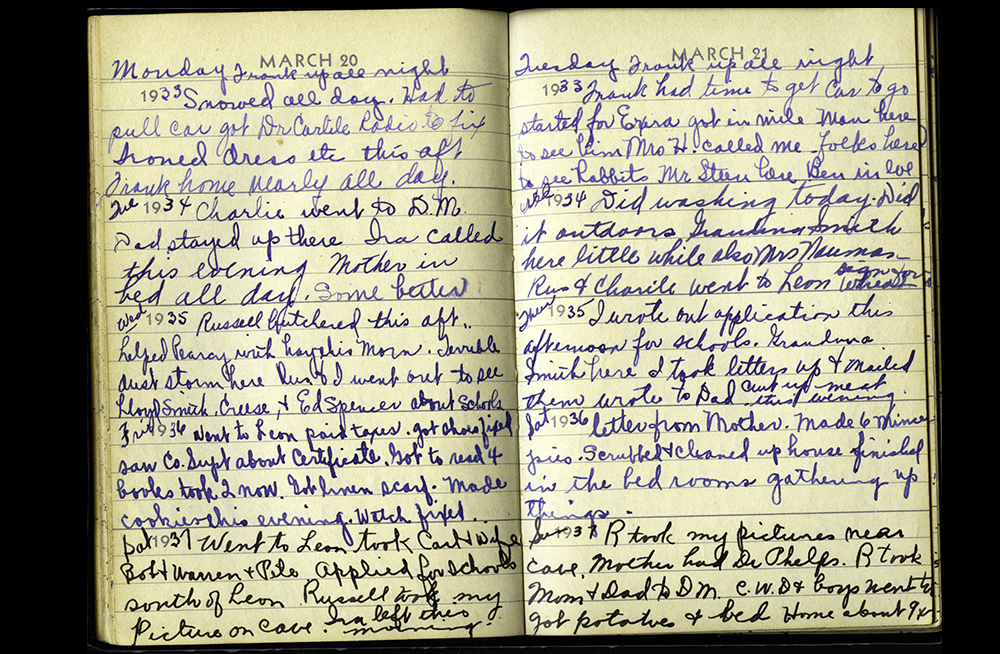 MARCH 20
Monday Frank up all night
1933 Snowed all day. Had to
pull car got Dr Carlile Radio to fix
Ironed dress etc this aft
Frank home nearly all day.
Tue 1934 Charlie went to D.M.
Dad stayed up there Ira called
this evening Mother in
bed all day. Some better
Wed 1935 Russell butchered this aft..
helped Pearcy with hay this morn. Terrible
dust storm here Rus & I went out to see
Lloyd Smith. Creese, & Ed Spencer about Schools
Fri 1936 Went to Leon paid taxes. got shoes fixed
saw Co. Supt about Certificate. Got to read 4
books took 2 now. Got linen scarf. Made
cookies this evening. Watch fixed..
Sat 1937 Went to Leon took Carl & Wife
Bob & Warren & Pete Applied for schools
south of Leon Russell took my
Picture on cave. Ira left this
morning.
MARCH 21
Tuesday Frank up all night
1933 Frank had time to get Car to go
started for Ezra got in mile Man here
to see him Mrs H. called me. Folks here
to see Rabbits Mr Steen here Ben in
Wed 1934 Did washing today. Did
it outdoors Grandma Smith
here little while also Mrs Nauman
Rus & Charlie went to Leon
Thur 1935 I wrote out application this
afternoon for schools. Grandma
Smith here I took letters up & mailed
them wrote to Dad Cut up meat
this evening.
Sat 1936 letter from Mother. Made 6 mince
pies. Scrubbed & cleaned up house finished
in the bed rooms gathering up
things.
Su 1937 R took my pictures near
cave, Mother had Dr Phelps. R took
Mom & Dad to D.M. C.W.D & boys went to
got potatoes & bed Home about 9